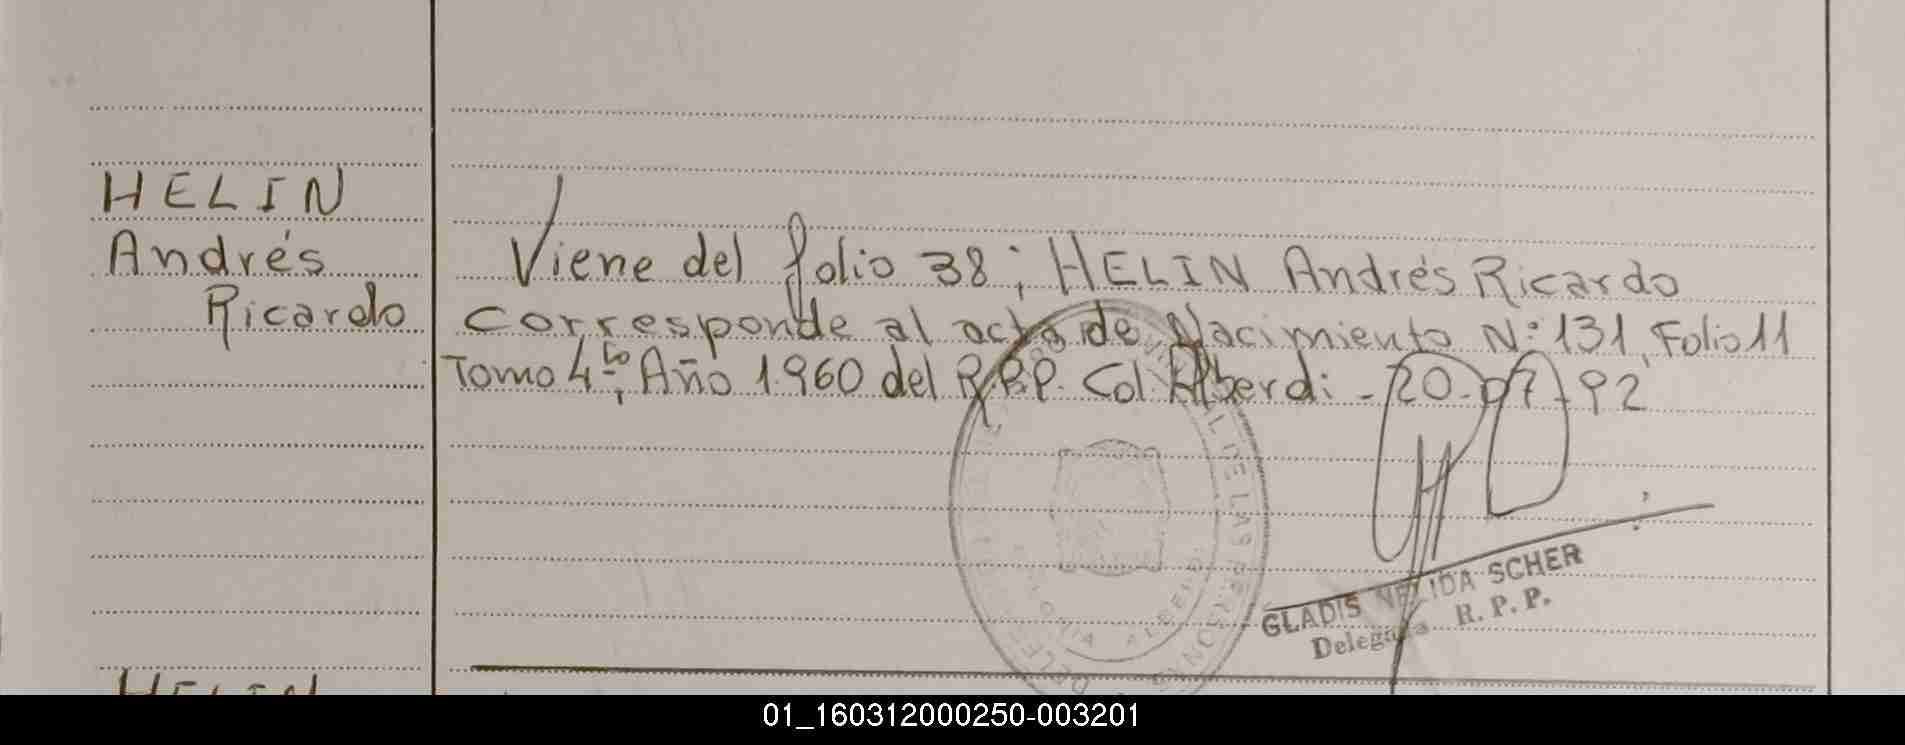 HELIN
Andrés
Ricardo
Viene del folio 38; HELIN Andrés Ricardo
corresponde al acta de Nacimiento Nº: 131, Folio 11
Tomo 4to, Año 1.960 del R.P.P. Col Alberdi - 20-07-92
IL DE LAS PERSONAS
COLONIA ALBERDI
GLADIS NELIDA SCHER
Delegada R. P. P.
HELIN
01_160312000250-003201